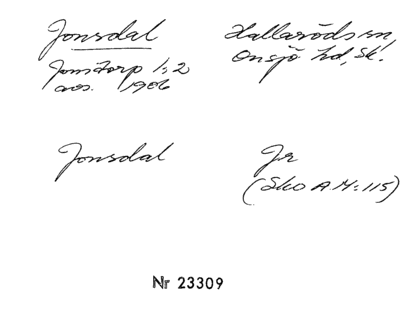 Jonsdal
Hallaröds sn,
Jonstorp 1:2
Onsjö hd, Sk.
avs. 1906
Jonsdal
Jr
(Sko A M:115)
Nr 23309